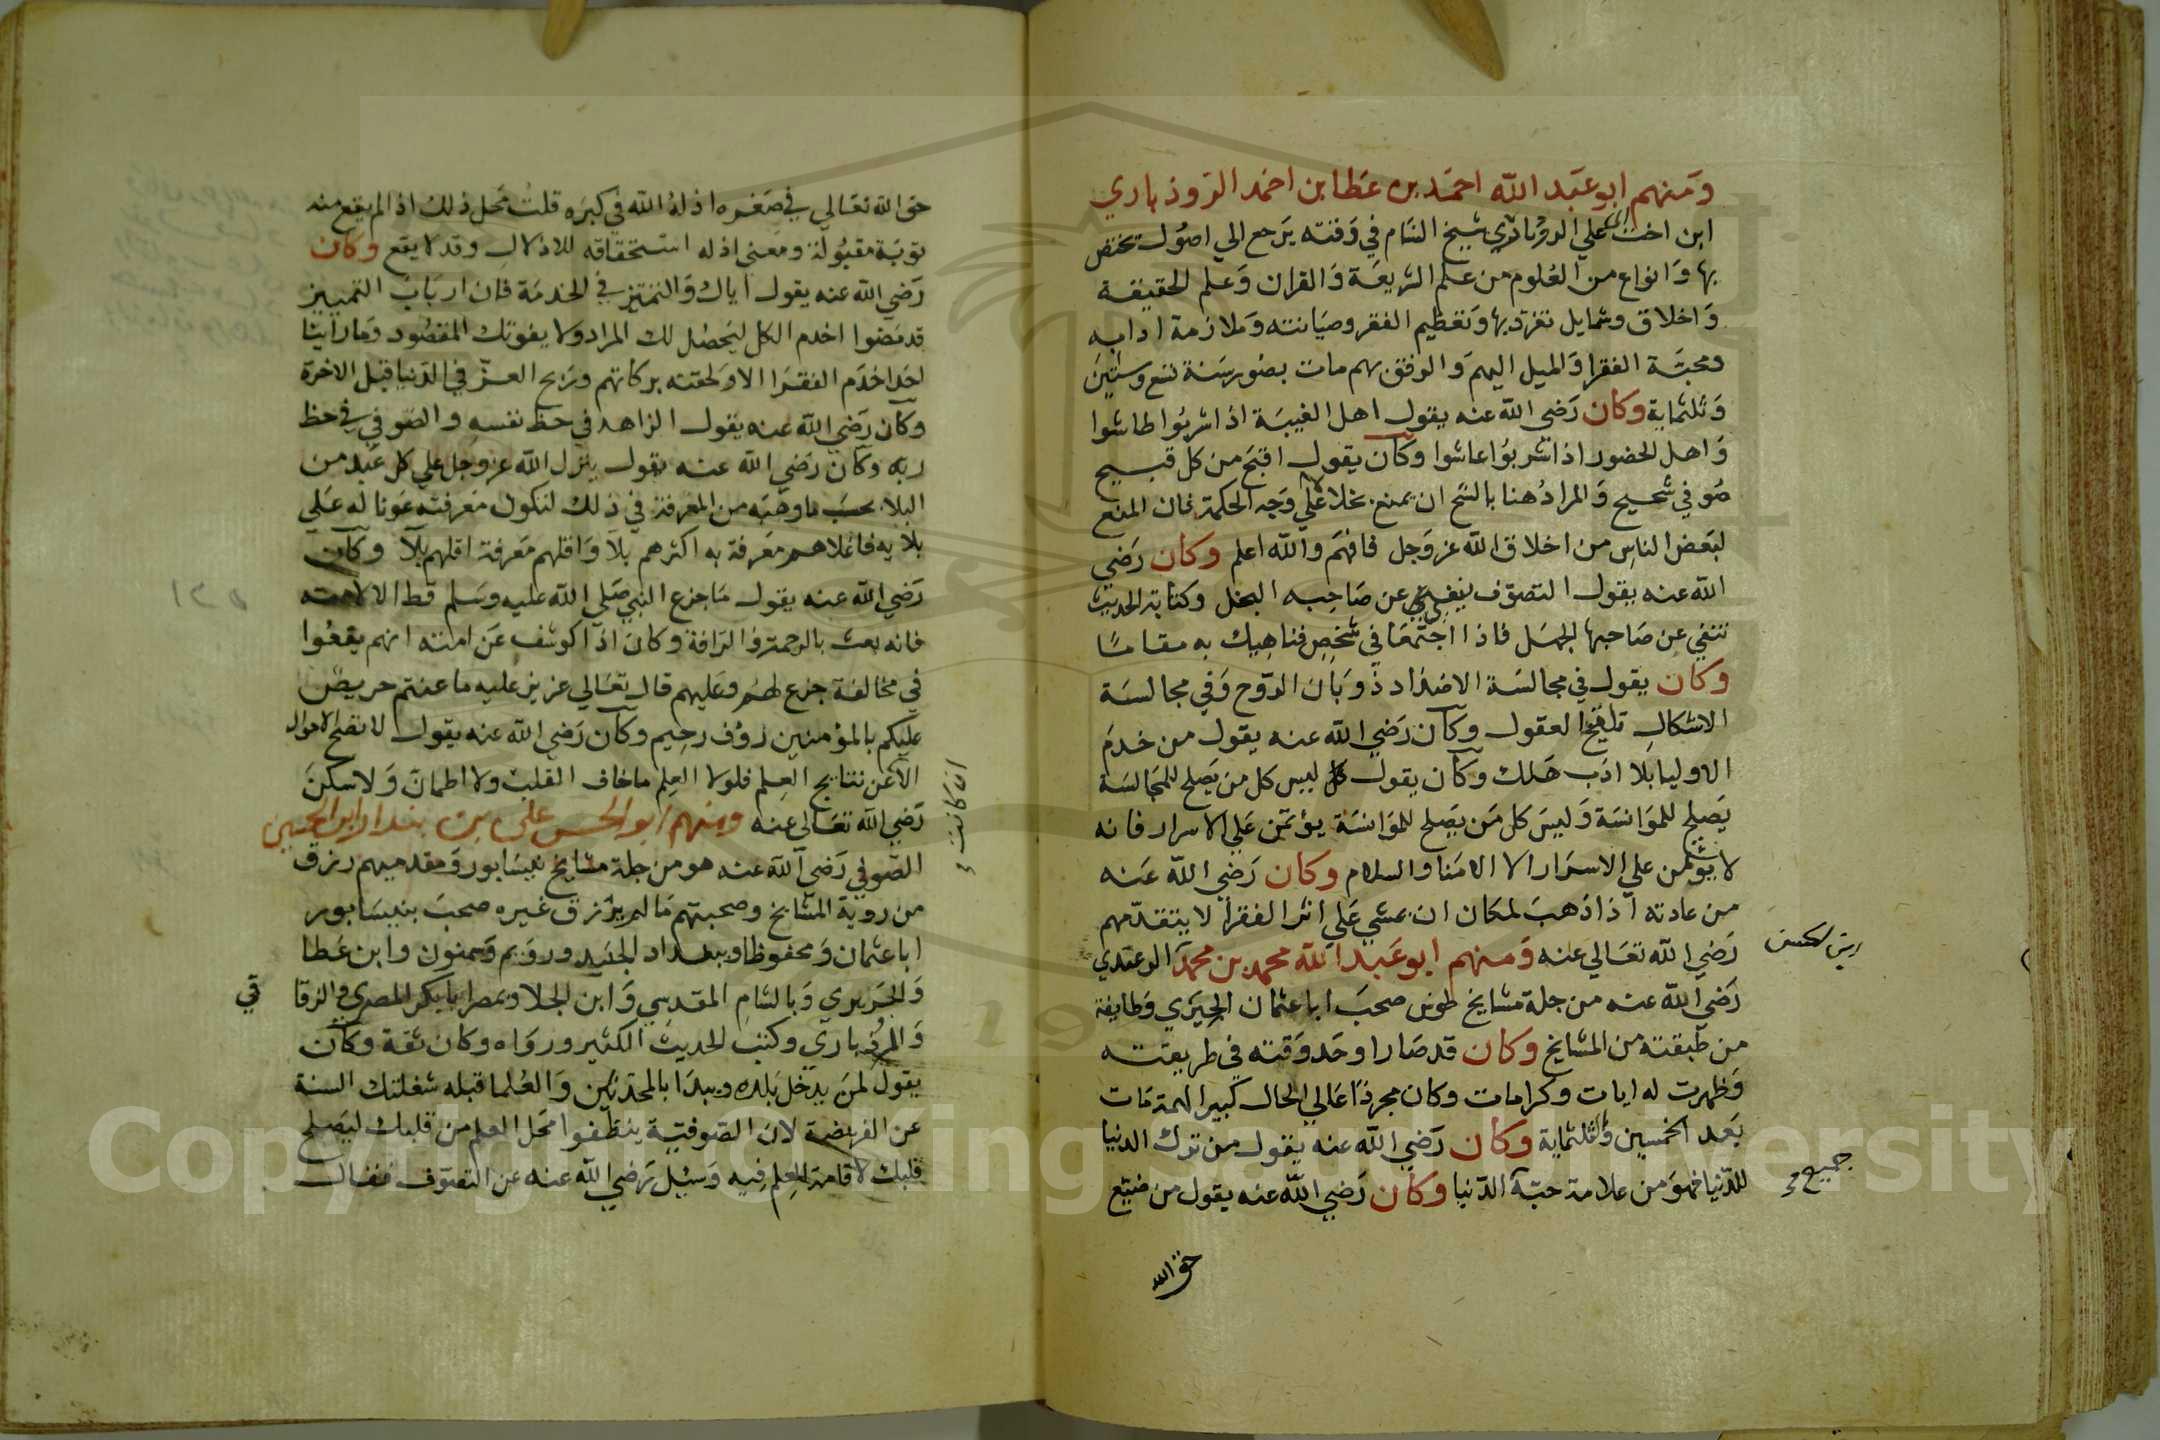 ومنهم ابو عبد الله احمد بن عطا بن احمد الروذباري
ابن اخت ابي علي الروذباري شيخ الشام في وقته يرجع الي اصول يختص
بها وانواع من العلوم من علم الشريعة والقران وعلم الحقيقة
واخلاق وشمايل تفرد بها وتعظيم الفقر وصيانته وملازمة ادابه
ومحبة الفقرا والميل اليهم والرفق بهم مات بصور سنة تسع وستين
وثلثماية وكان رضي الله عنه يقول اهل الغيبة اذا شربوا طاشوا
واهل الحضور اذا شربوا عاشوا وكان يقول اقبح من كل قبيح
صوفي شحيح والمراد هنا بالشح ان يمنع بخلا لا علي وجه الحكمة فان المنع
لبعض الناس من اخلاق الله عز وجل فافهم والله اعلم وكان رضي
الله عنه يقول التصوف ينفي عن صاحبه البخل وكتابة الحديث
تنفي عن صاحبها الجهل فاذا اجتمعا في شخص فناهيك به مقاما
وكان يقول في مجالسة الاضداد ذوبان الروح وفي مجالسة
الاشكال تلقيح العقول وكان رضي الله عنه يقول من خدم
الاوليا بلا ادب هلك وكان يقول ليس كل من يصلح للمجالسة
يصلح للموانسة وليس كل من يصلح للموانسة يؤتمن علي الاسرار فانه
لا يؤتمن علي الاسرار الا الامنا والسلام وكان رضي الله عنه
من عادته اذا ذهب لمكان ان يمشي علي اثر الفقرا لا يتقدمهم
رضي الله تعالي عنه ومنهم ابو عبد الله محمد بن محمد الروغندي
رضي الله عنه من جلة مشايخ طوس صحب ابا عثمان الحيري وطايفة
من طبقته من المشايخ وكان قد صار اوحد وقته في طريقته
وظهرت له ايات وكرامات وكان مجردا عالي الحال كبير الهمة مات
بعد الخمسين والثلثماية وكان رضي الله عنه يقول من ترك الدنيا
للدنيا فهو من علامة حبه الدنيا وكان رضي الله عنه يقول من ضيع
جميع
حق الله
حق الله تعالي في صغره اذله الله في كبره قلت محل ذلك اذا لم يقع منه
توبة مقبولة ومعني اذله استحقاقه للاذلال وقد لا يقع وكان
رضي الله عنه يقول اياك والتمييز في الخدمة فان ارباب التمييز
قد مضوا اخدم الكل ليحصل لك المراد ولا يفوتك المقصود وما راينا
احدا خدم الفقرا الا ولحقته بركاتهم وربح العز في الدنيا قبل الاخرة
وكان رضي الله عنه يقول الزاهد في حظ نفسه والصوفي في حظ
ربه وكان رضي الله عنه يقول ينزل الله عز وجل علي كل عبد من
البلا بحسب ما وهبه من المعرفة في ذلك لتكون معرفته عونا له علي
بلايه فاعلاهم معرفة به اكثرهم بلا واقلهم معرفة اقلهم بلا وكان
رضي الله عنه يقول ما جزع النبي صلي الله عليه وسلم قط الا لامته
فانه بعث بالرحمة والرافة وكان اذا كوشف عن امته انهم يقعوا
في مخالفة جزع لهم وعليهم قال تعالي عزيز عليه ما عنتم حريص
عليكم بالمؤمنين روف رحيم وكان رضي الله عنه يقول لا تصلح الاحوال
الا عن نتايج العلم فلولا العلم ما خاف القلب ولا اطمان ولا سكن
ان كانت
رضي الله تعالي عنه ومنهم ابو الحسن علي بن بندار ابن الحسين
الصوفي رضي الله عنه هو من جلة مشايخ نيسابور ومقدميهم رزق
من روية المشايخ وصحبتهم ما لم يرزق غيره صحب بنيسابور
ابا عثمان ومحفوظا وببغداد الجنيد ورويم وسمنون وابن عطا
والجريري وبالشام المقدسي وابن الجلا وبمصر ابا بكر المصري والزقا
قي
والروذباري وكتب الحديث الكثير ورواه وكان ثقة وكان
يقول لمن يدخل بلده ويبدا بالمحدثين والعلما قبله شغلتك السنة
عن الفريضة لان الصوفية ينظفوا محل العلم من قلبك ليصلح
قلبك لاقامة العلم فيه وسئل رضي الله عنه عن التصوف فقال